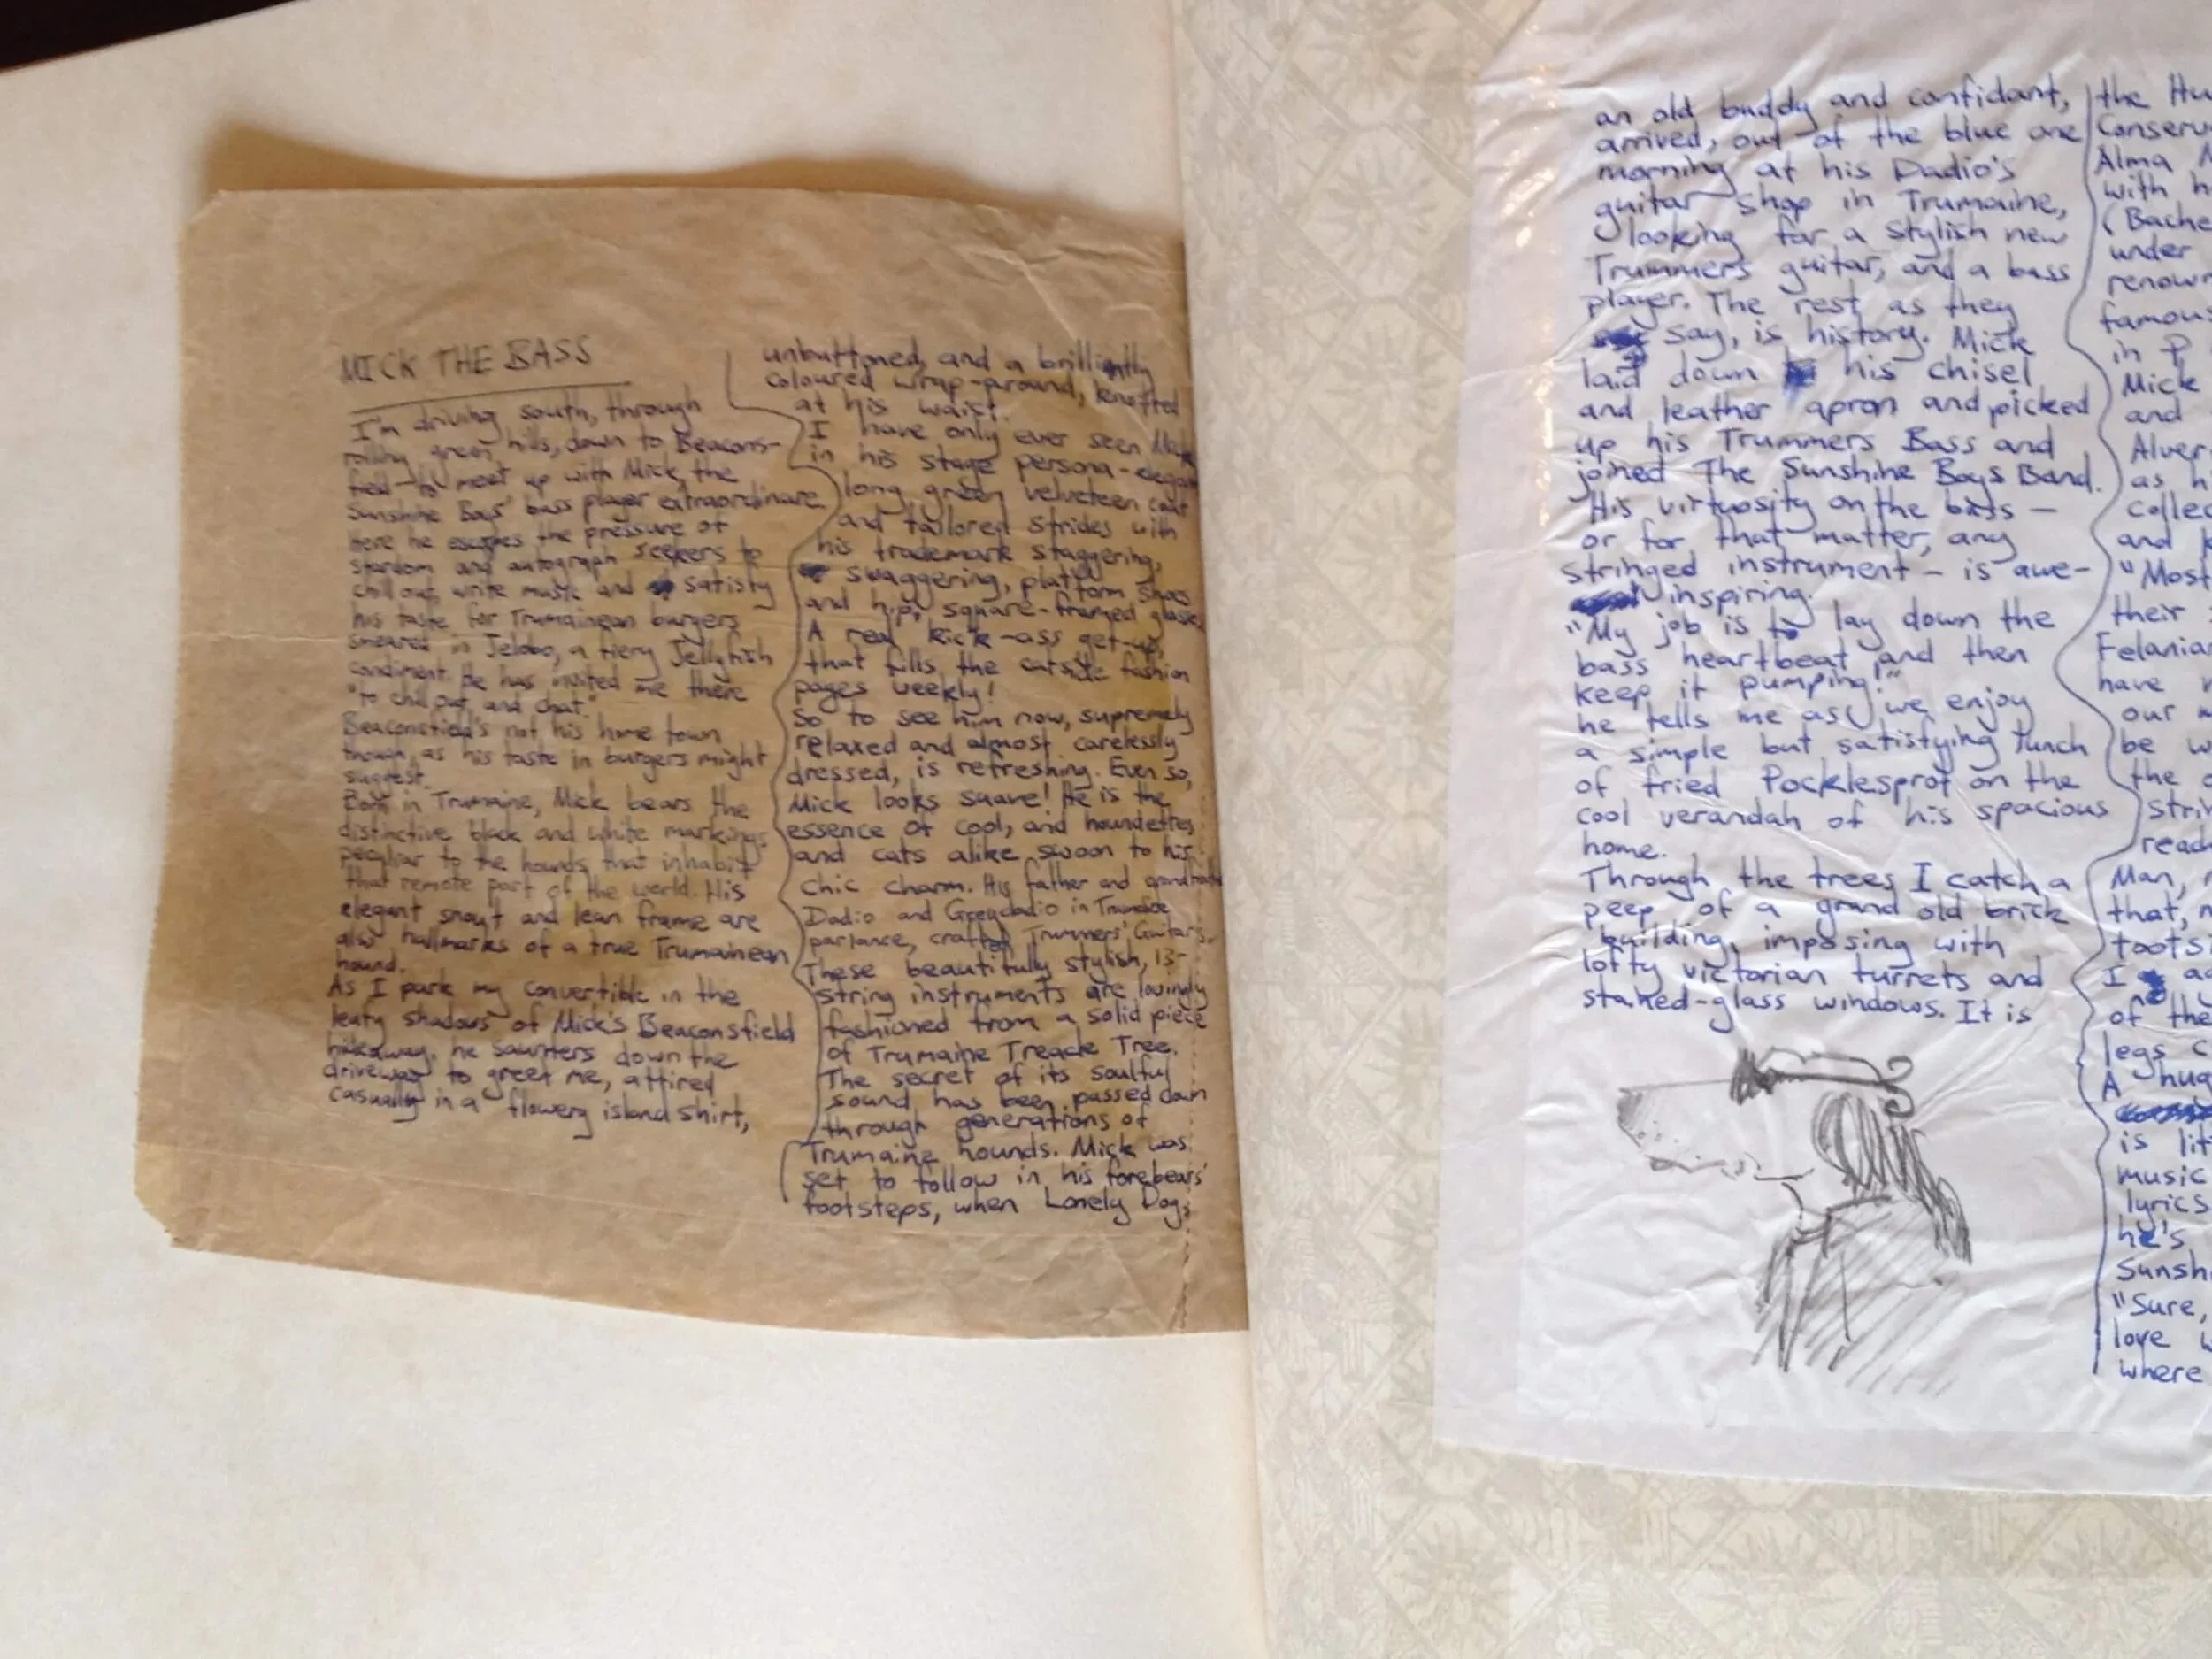 MICK THE BASS
I'm driving south, through
rolling green hills, down to Beacons-
field to meet up with Mick, the
Sunshine Boys' bass player extraordinaire.
Here he escapes the pressure of
stardom and autograph seekers to
chill out, write music and satisfy
his taste for Trumainean burgers
smeared in Jelobo, a fiery Jellyfish
condiment. He has invited me there
"to chill out and chat."
Beaconsfield's not his home town
though, as his taste in burgers might
suggest.
Born in Trumaine, Mick bears the
distinctive black and white markings
peculiar to the hounds that inhabit
that remote part of the world. His
elegant snout and lean frame are
also hallmarks of a true Trumainean
hound.
As I park my convertible in the
leafy shadows of Mick's Beaconsfield
hideaway, he saunters down the
driveway to greet me, attired
casually in a flowery island shirt,
unbuttoned, and a brilliantly
coloured wrap-around, knotted
at his waist.
I have only ever seen Mick
in his stage persona - elegant
long green velveteen coat
and tailored strides with
his trademark staggering,
swaggering, platform shoes
and hip, square-framed glasses.
A real kick-ass get-up,
that fills the catside fashion
pages weekly!
So to see him now, supremely
relaxed and almost carelessly
dressed, is refreshing. Even so,
Mick looks suave! He is the
essence of cool, and houndettes
and cats alike swoon to his
chic charm. His father and
Dadio and Greydadio in Trumaine
parlance, crafted Trummers' Guitars.
These beautifully stylish, 13-
string instruments are lovingly
fashioned from a solid piece
of Trumaine Treacle Tree.
The secret of its soulful
sound has been passed down
through generations of
Trumaine hounds. Mick was
set to follow in his forebears'
footsteps, when Lonely Dog,
an old buddy and confidant,
arrived, out of the blue one
morning at his Dadio's
guitar shop in Trumaine,
looking for a stylish new
Trummers guitar, and a bass
player. The rest as they
say, is history. Mick
laid down his chisel
and leather apron and picked
up his Trummers Bass and
joined The Sunshine Boys Band.
His virtuosity on the bass —
or for that matter, any
stringed instrument — is awe-
inspiring.
"My job is to lay down the
bass heartbeat and then
keep it pumping!"
he tells me as we enjoy
a simple but satisfying lunch
of fried Pocklesprot on the
cool verandah of his spacious
home.
Through the trees I catch a
peep of a grand old brick
building, imposing with
lofty victorian turrets and
stained-glass windows. It is
the
Alma
with
under
in P
Mick
and
as
and
"Most
their
have
our
be
the
Man,
that,
I
of the
legs
A
is
music
lyrics
he's
"Sure,
love
where